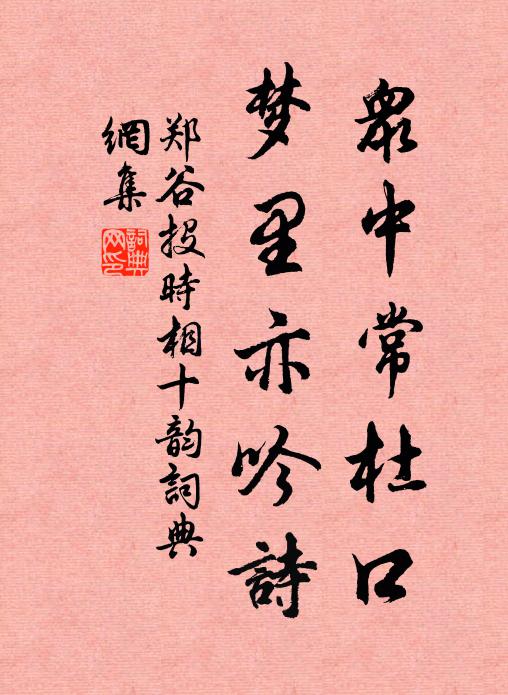 眾中常杜口
梦里亦吟詩
郑谷投時相十韵詞典
網集
詞典
网印